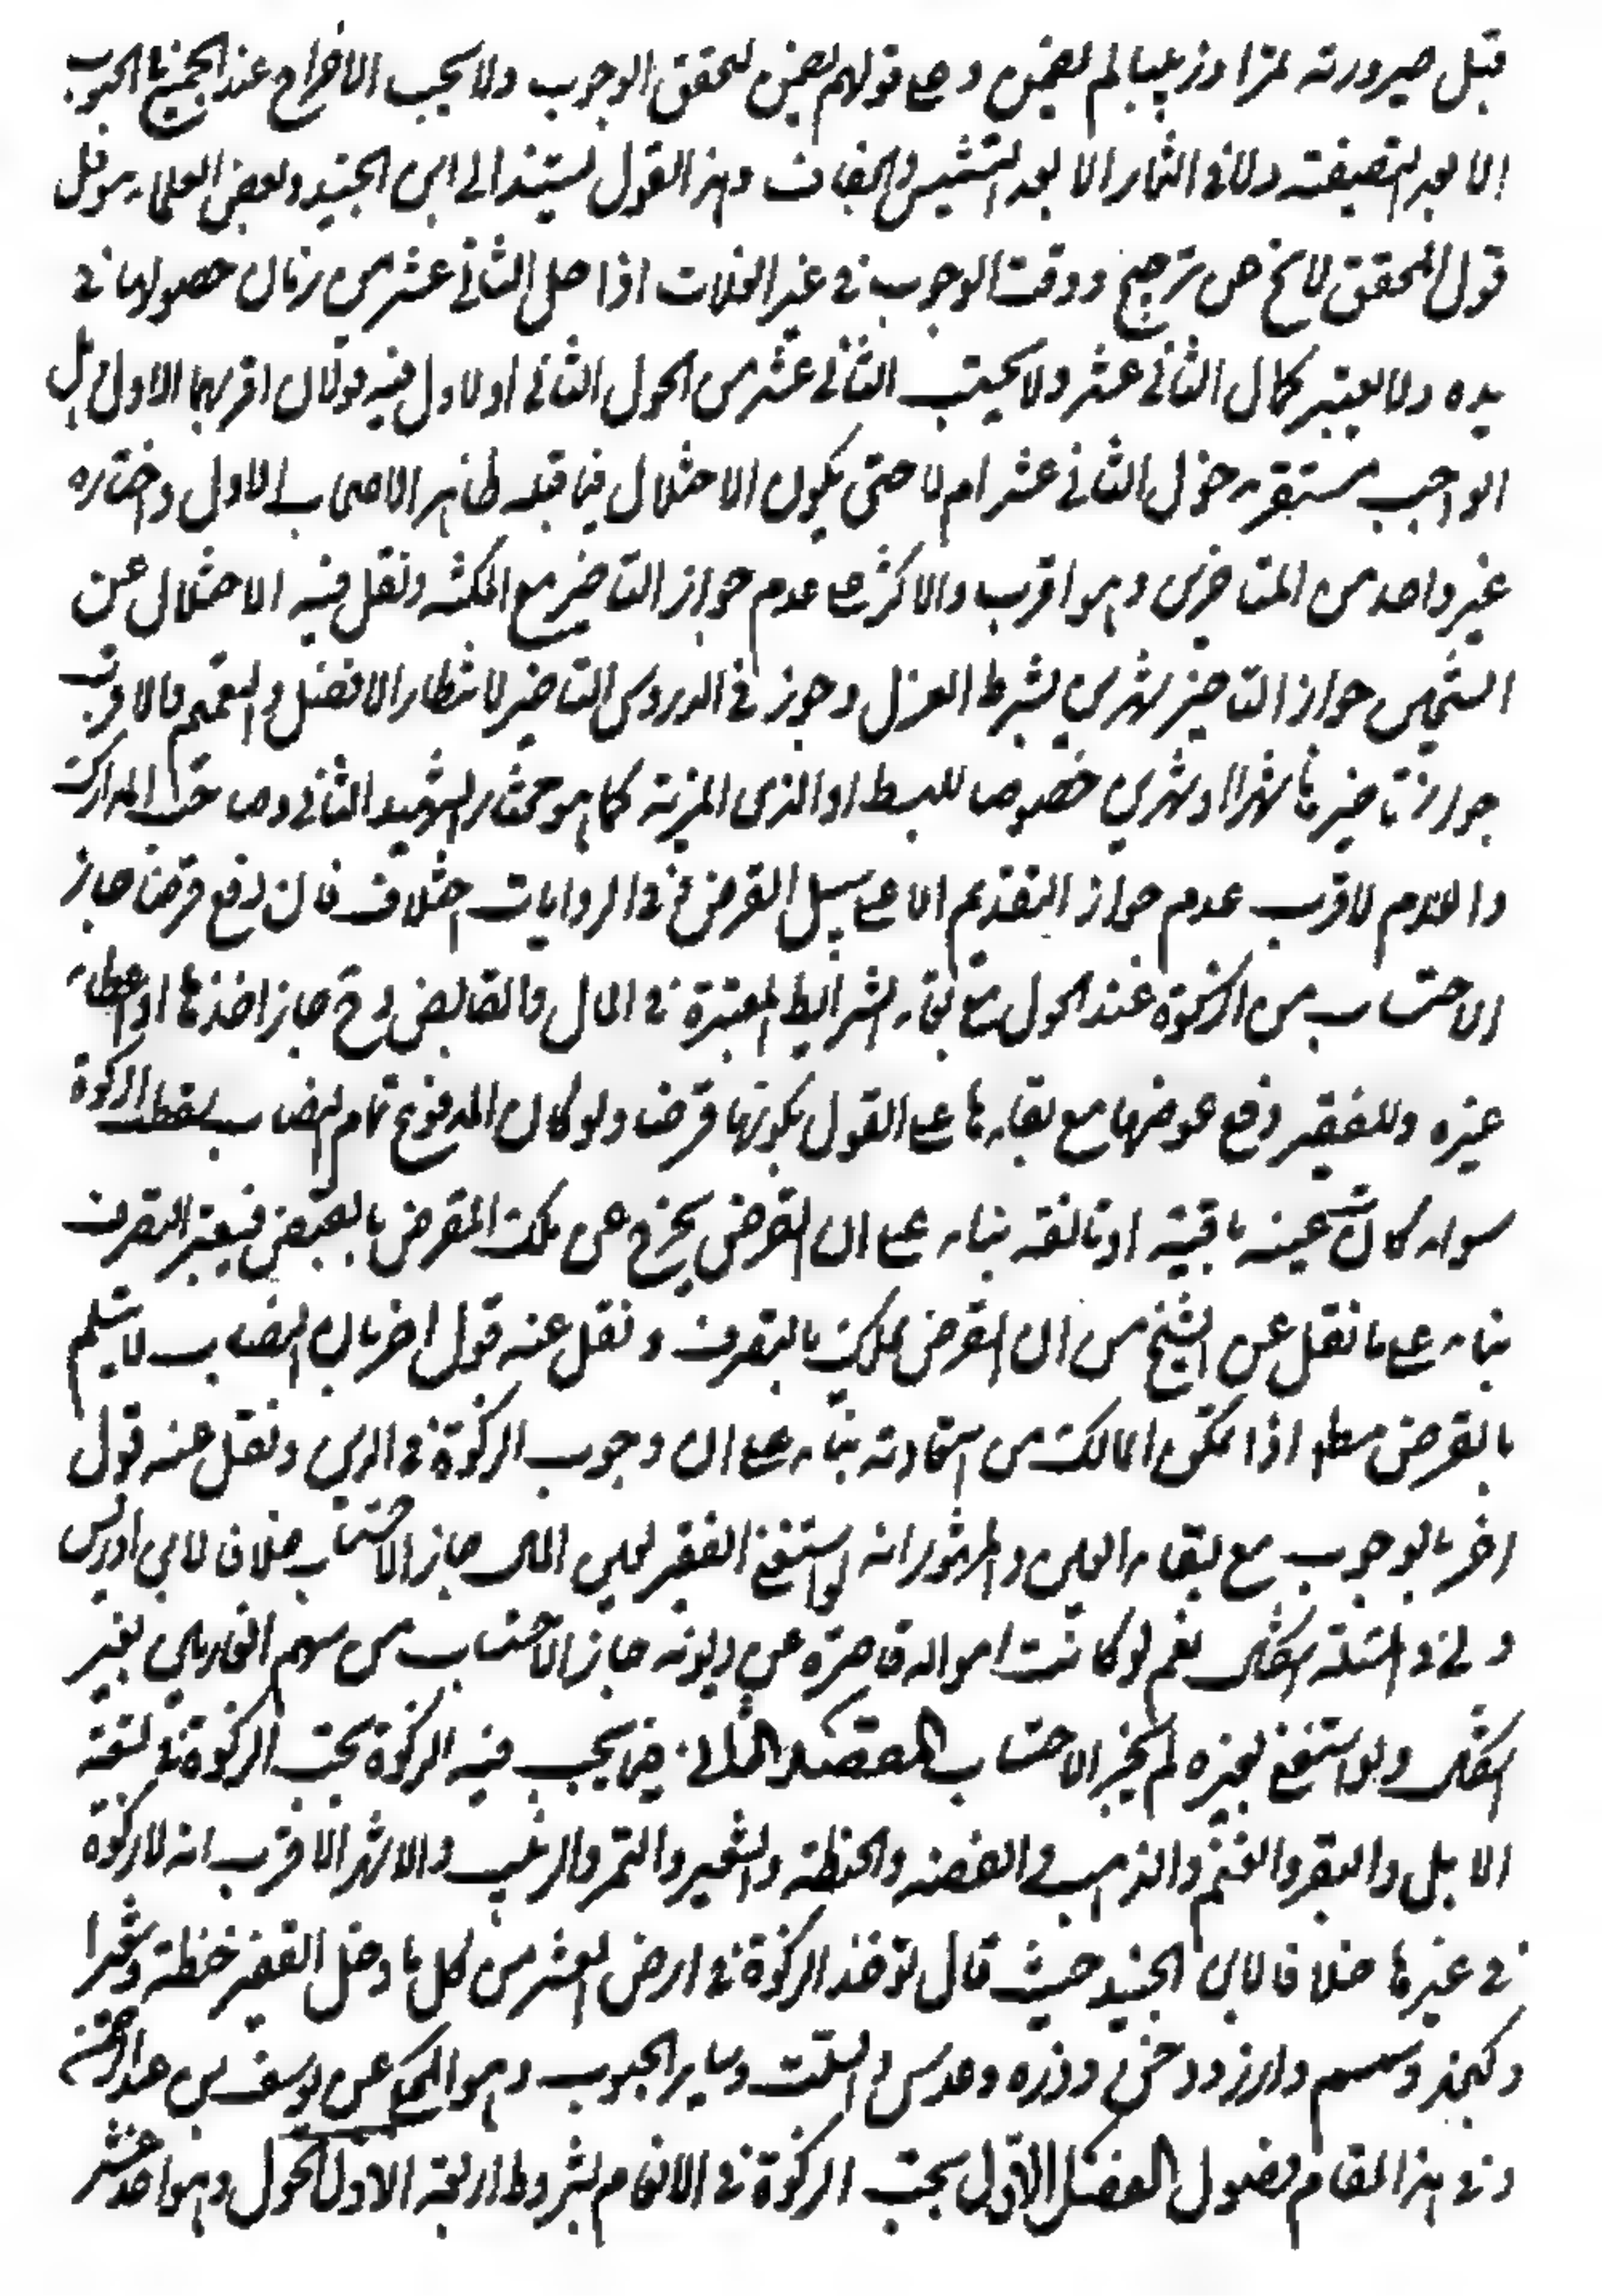 قبل صيرورته تمرا وزبيبا لم يضمن وعلى قولهم يضمن لتحقق الوجوب ولا يجب الاخراج عند الجميع في الحبوب
الا بعد التصفية ولا في الثمار الا بعد التشميس والجفاف وهذا القول يستند الى ابن الجنيد وبعض العلماء
قول المحقق لا يخ عن ترجيح ووقت الوجوب في غير الغلات اذا هل الثاني عشر من زمان حصولها في
يده ولا يعتبر كمال الثاني عشر ولا يحتسب الثاني عشر من الحول الثاني او لاول فيه قولان اقربهما الاول وهل
الوجوب مستقر بدخول الثاني عشر ام لا حتى يكون الاختلال فيما قبله ظاهر الاصحاب الاول واختاره
غير واحد من المتاخرين وهو اقرب والاكثر على عدم جواز التاخير مع المكنة ونقل فيه الاختلال عن
الشيخين جواز التاخير شهرين بشرط العزل وجوز في الدروس التاخير لانتظار الافضل والتعميم والاقرب
جواز تاخيرها شهرا او شهرين خصوصا للبسط او لذى المزية كما هو مختار الشهيد الثاني وصاحب المدارك
والاقرب عدم جواز التقديم الا على سبيل القرض في الروايات اختلاف فان دفع قرضا جاز
الاحتساب من الزكوة عند الحول مع بقاء الشرايط المعتبرة في المال والقابض و ح جاز اخذها او اعطاء
غيره وللفقير دفع عوضها مع بقائها على القول بكونها قرضا ولو كان المدفوع تمام النصاب سقطت الزكوة
سواء كانت عينه باقية او تالفة بناء على ان القرض يخرج عن ملك المقرض بالقبض فيعتبر التصرف
بناء على ما نقل عن الشيخ من ان القرض يملك بالتصرف ونقل عنه قول اخر بان النصاب لا ينثلم
بالقرض مطلقا اذا تمكن المالك من استعادته بناء على ان وجوب الزكوة في الدين ونقل عنه قول
اخر بالوجوب مع بقاء العين والمشهور انه لو استغنى الفقير بعين المال جاز الاحتساب خلافا لابن ادريس
وفي المسئلة اشكال نعم لو كانت امواله قاصرة عن ديونه جاز الاحتساب من سهم الغارمين بغير
اشكال ولو استغنى بغيره لم يجز الاحتساب المقصد الثاني فيما يجب فيه الزكوة تجب الزكوة في تسعة
الابل والبقر والغنم والذهب والفضة والحنطة والشعير والتمر والزبيب والاشهر الاقرب انه لا زكوة
في غيرها خلافا لابن الجنيد حيث قال تؤخذ الزكوة في ارض العشر من كل ما دخل القفيز حنطة وشعيرا
وسمسم وارز ودخن وذره وعدس وسلت وساير الحبوب وهو المحكى عن يوسف بن عبد الرحمن
وفي هذا المقام فصول الفصل الاول تجب الزكوة في الانعام بشروط اربعة الاول الحول وهو احد عشر